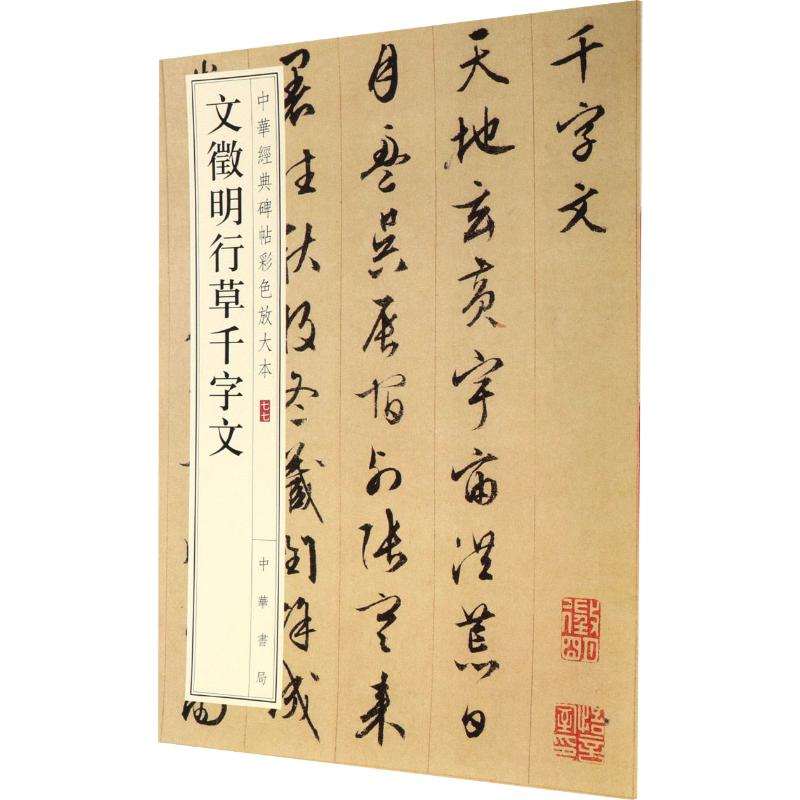 千字文
天地玄黃宇宙洪荒日
月盈昃辰宿列張寒來
暑往秋收冬藏閏餘成
徵明
悟言室印
中華經典碑帖彩色放大本 七七
文徵明行草千字文
中華書局